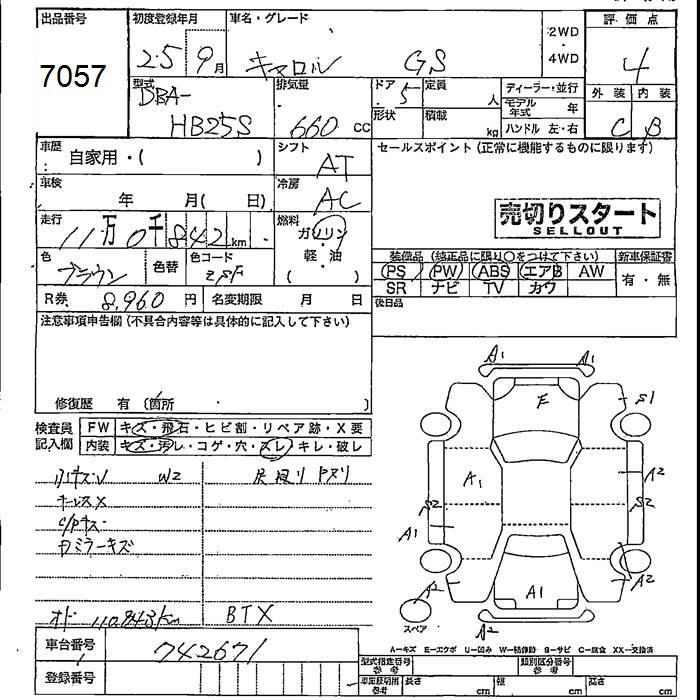 出品番号
7057
初度登録年月
25 9月
車名・グレード
キャロル GS
2WD
・
4WD
評価点
4
型式
DBA-
HB25S
排気量
660 cc
ドア 5
定員 人
形状
積載 kg
ディーラー・並行
モデル年式 年
ハンドル 左・右
外装 内装
C B
車歴 自家用・( )
シフト AT
セールスポイント (正常に機能するものに限ります)
車検 年 月( 日)
冷房 AC
売切りスタート
SELLOUT
走行 11万0千842km
燃料
ガソリン
・
軽・油
( )
色 ブラウン
色替
色コード
装備品 (純正品に限り○をつけて下さい)
新車保証書
PS PW ABS エアB AW
SR ナビ TV カワ
有・無
R券 8,960 円
名変期限 月 日
後日品
注意事項申告欄 (不具合内容等は具体的に記入して下さい)
修復歴 有 (箇所 )
検査員
記入欄
FW キズ・飛石・ヒビ割・リペア跡・X要
内装 キズ・汚レ・コゲ・穴・スレ・キレ・破レ
W2
キーレスX
C/Pキズ
Fミラーキズ
オド 110,843km
BTX
A1 A1
E
S1
A1
A2
S2 S2
A1
A2 A2
A1
スペア
A2
車台番号 742671
登録番号
A−キズ E−エクボ U−凹み W−補修跡 S−サビ C−腐食 XX−交換済
型式指定番号 参考
類別区分番号 参考
車庫証明用 参考
長さ cm
幅 cm
高さ cm